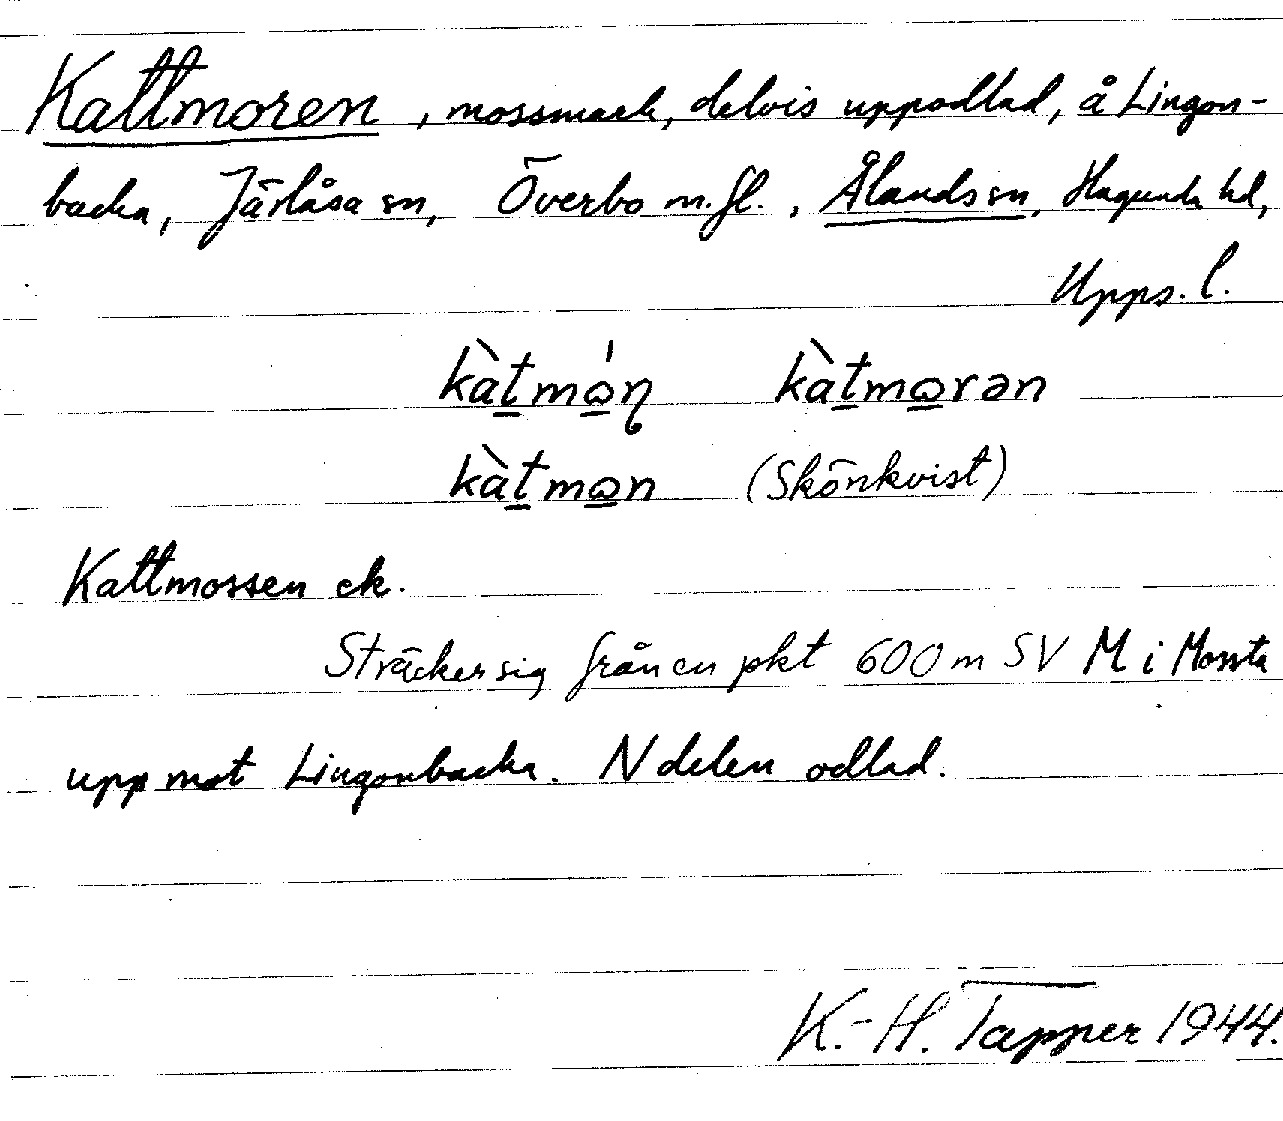 Kattmoren, mossmark, delvis uppodlad, å Lingon-
backa, Järlåsa sn, Överbo m.fl., Ålands sn, Hagunda hd,
Upps. l.
kàt̠mò̠ɳ kàt̠mo̠rən
kàt̠mo̠n (Skönkvist)
Kattmossen ek.
Sträcker sig från en pkt 600 m SV M i Mossta
upp mot Lingonbacka. N delen odlad.
K.-H. Tapper 1944.